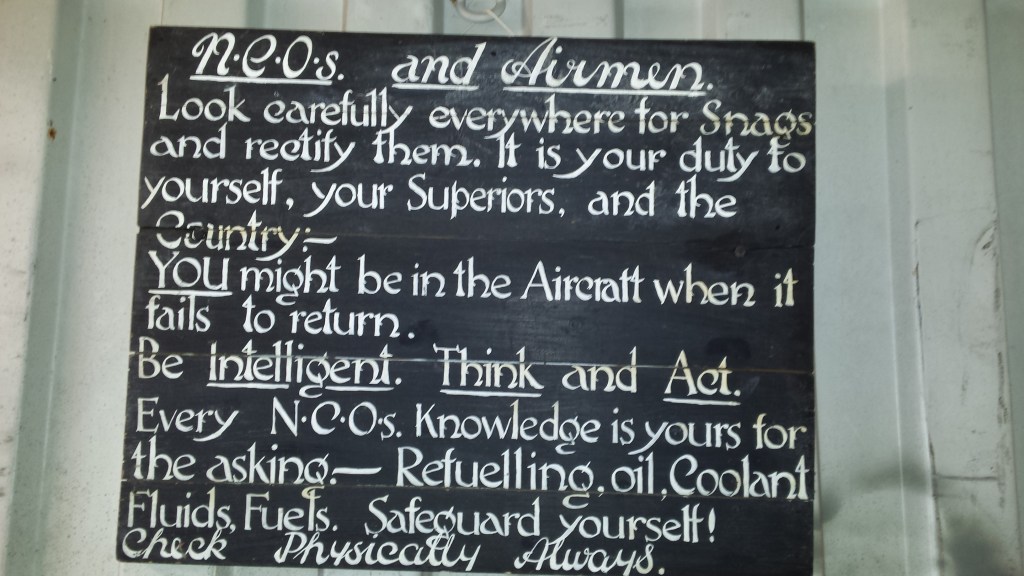 N.C.O.s. and Airmen.
Look carefully everywhere for Snags
and rectify them. It is your duty to
yourself, your Superiors, and the
Country:-
YOU might be in the Aircraft when it
fails to return.
Be Intelligent. Think and Act.
Every N.C.O.s. Knowledge is yours for
the asking.— Refuelling, oil, Coolant
Fluids, Fuels. Safeguard yourself!
Check Physically Always.